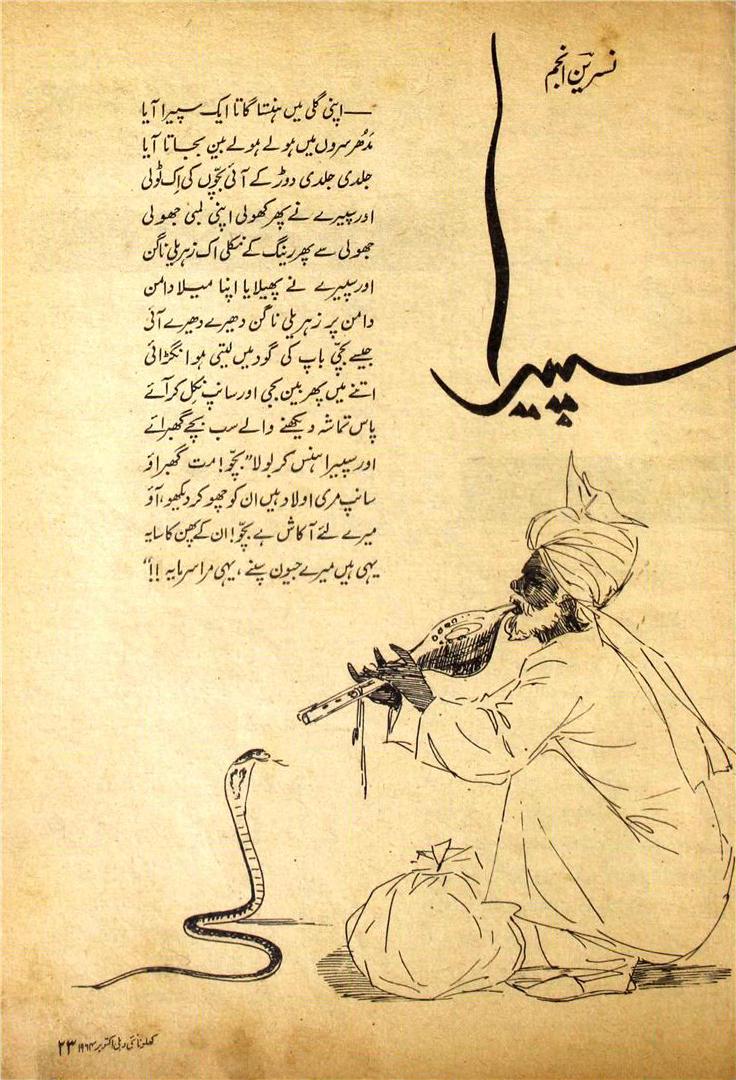 نسرین انجم
سپیرا
— اپنی گلی میں ہنستا گاتا ایک سپیرا آیا
مَدُھر سروں میں ہولے ہولے بین بجاتا آیا
جلدی جلدی دوڑ کے آئی بچّوں کی اِک ٹولی
اور سپیرے نے پھر کھولی اپنی لمبی جھولی
جھولی سے پھر رینگ کے نکلی اک زہریلی ناگن
اور سپیرے نے پھیلایا اپنا میلا دامن
دامن پر زہریلی ناگن دھیرے دھیرے آئی
جیسے بچّی باپ کی گود میں لیتی ہو انگڑائی
اتنے میں پھر بین بجی اور سانپ نکل کر آئے
پاس تماشہ دیکھنے والے سب بچے گھبرائے
اور سپیرا ہنس کر بولا "بچّو! مت گھبراؤ
سانپ مری اولاد ہیں ان کو چھو کر دیکھو، آؤ
میرے لئے آکاش ہے بچّو! ان کے پھن کا سایہ
یہی ہیں میرے جیون سپنے، یہی مرا سرمایہ !!"
کھلونا نئی دہلی اکتوبر ۱۹۶۴ ۲۳